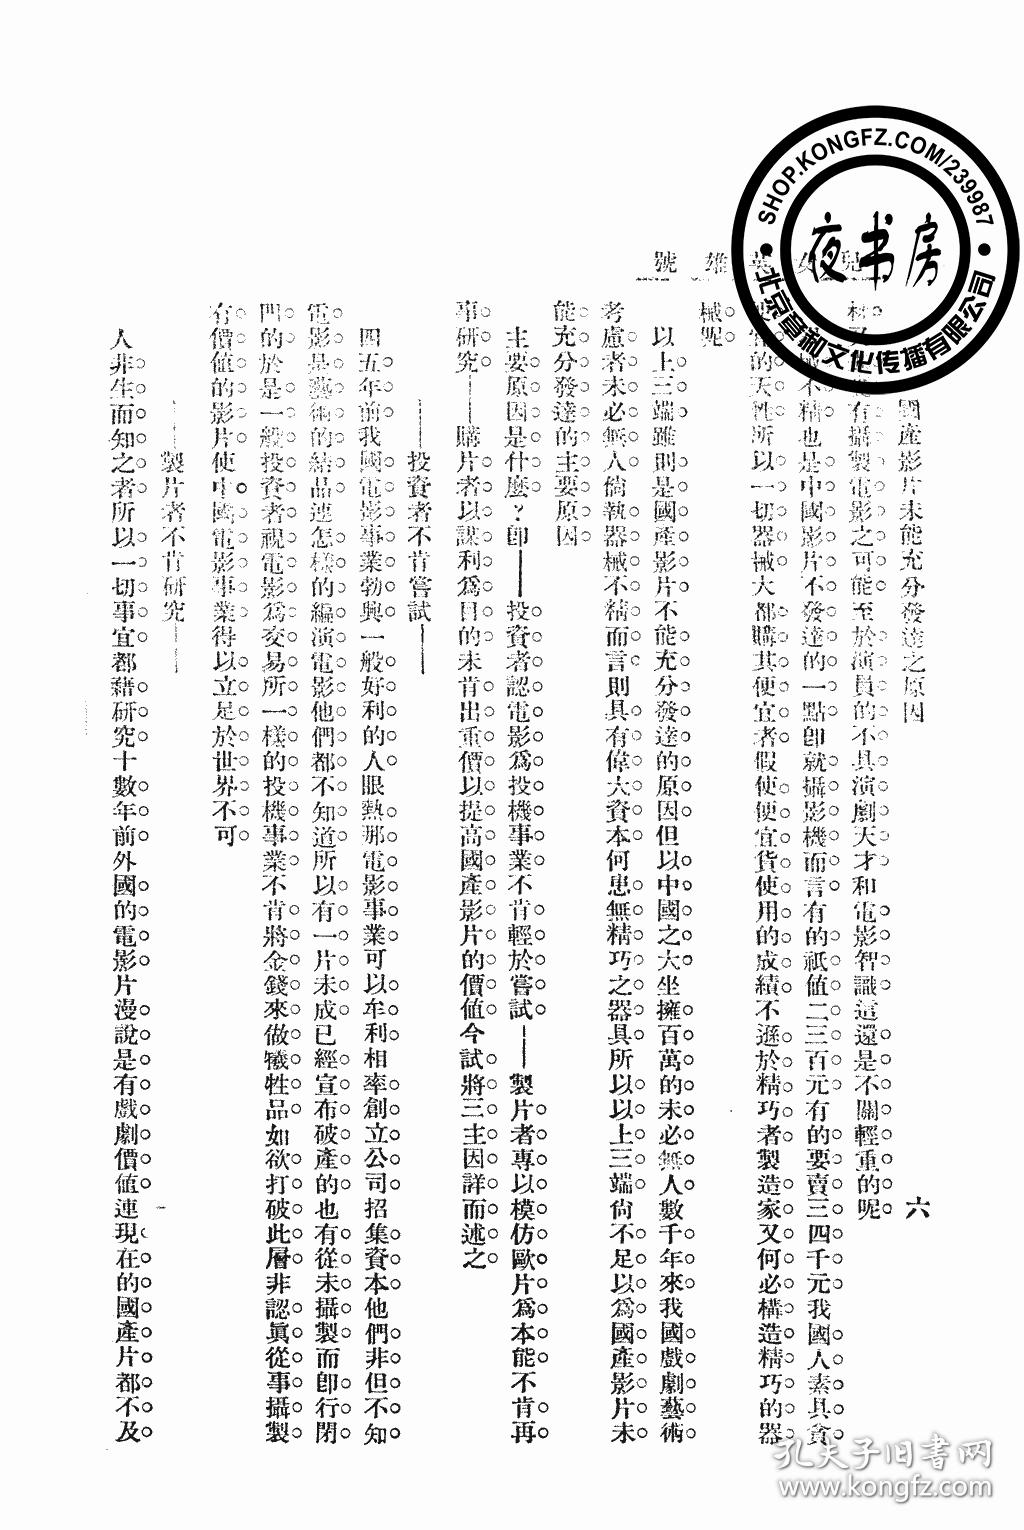 兒女英雄號
國產影片未能充分發達之原因
六
有攝製電影之可能至於演員的不具演劇天才和電影智識這還是不關輕重的呢
不精也是中國影片不發達的一點即就攝影機而言有的祇値二三百元有的要賣三四千元我國人素具貪
便宜的天性所以一切器械大都購其便宜者假使便宜貨使用的成績不遜於精巧者製造家又何必構造精巧的器
械呢
以上三端雖則是國產影片不能充分發達的原因但以中國之大坐擁百萬的未必無人數千年來我國戲劇藝術
考慮者未必無人倘執器械不精而言則具有偉大資本何患無精巧之器具所以以上三端尙不足以爲國產影片未
能充分發達的主要原因
主要原因是什麼？卽——投資者認電影爲投機事業不肯輕於嘗試——製片者專以模仿歐片爲本能不肯再
事研究——購片者以謀利爲目的未肯出重價以提高國產影片的價値今試將三主因詳而述之
——投資者不肯嘗試——
四五年前我國電影事業勃興一般好利的人眼熱那電影事業可以牟利相率創立公司招集資本他們非但不知
電影是藝術的結品連怎樣的編演電影他們都不知道所以有一片未成已經宣布破產的也有從未攝製而卽行閉
門的於是一般投資者視電影爲交易所一樣的投機事業不肯將金錢來做犧牲品如欲打破此層非認眞從事攝製
有價値的影片使中國電影事業得以立足於世界不可
——製片者不肯研究——
人非生而知之者所以一切事宜都藉研究十數年前外國的電影片漫說是有戲劇價値連現在的國產片都不及
夜书房
SHOP.KONGFZ.COM/239987
北京章和文化传播有限公司
孔夫子旧书网
www.kongfz.com